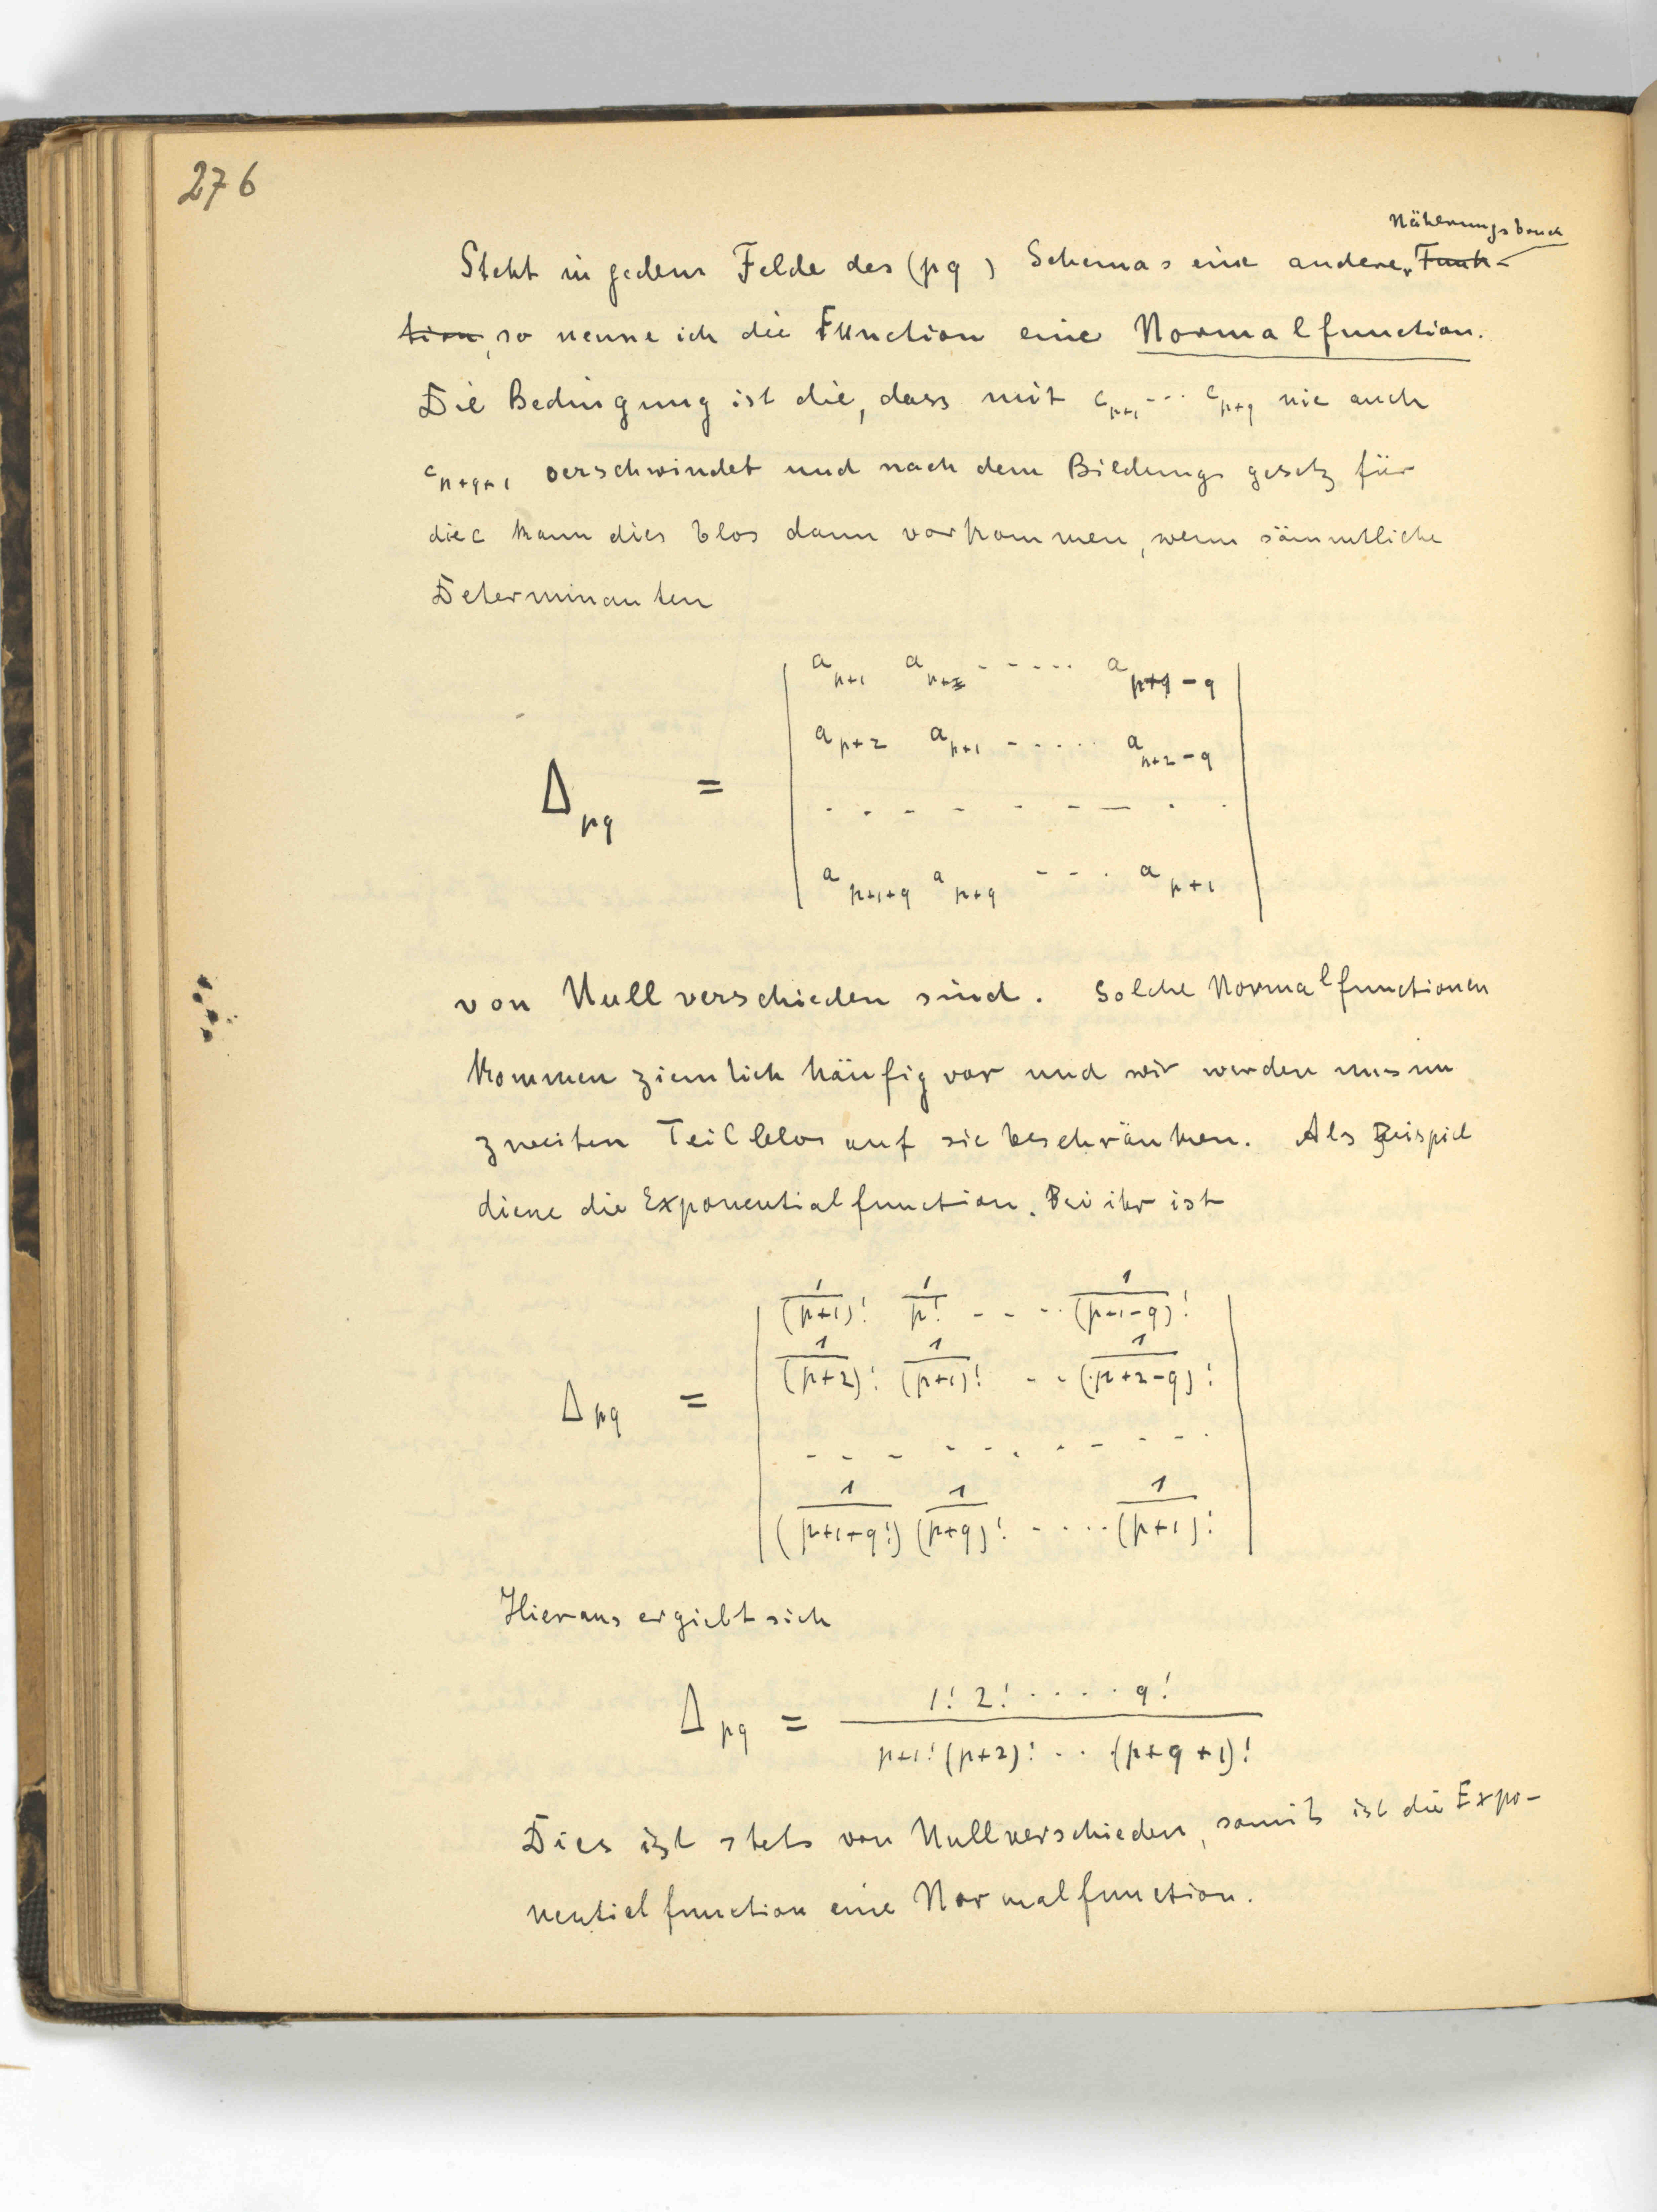 276
Näherungsbruch
Steht in jedem Felde des (pq) Schemas eine andere Funk-
tion, so nenne ich die Function eine Normalfunction.
Die Bedingung ist die, dass mit c_{p+1} ... c_{p+q} nie auch
c_{p+q+1} verschwindet und nach dem Bildungsgesetz für
die c kann dies blos dann vorkommen, wenn sämmtliche
Determinanten
a_{p+1} a_{p+2} ..... a_{p+1-q}
a_{p+2} a_{p+1} ..... a_{p+2-q}
Δ_{pq} =
a_{p+1+q} a_{p+q} ... a_{p+1}
von Null verschieden sind. Solche Normalfunctionen
kommen ziemlich häufig vor und wir werden uns im
zweiten Teil blos auf sie beschränken. Als Beispiel
diene die Exponentialfunction. Bei ihr ist
1/(p+1)! 1/p! .... 1/(p+1-q)!
1/(p+2)! 1/(p+1)! .. 1/(p+2-q)!
Δ_{pq} =
1/(p+1+q!) 1/(p+q)! ..... 1/(p+1)!
Hieraus ergiebt sich
Δ_{pq} = 1! 2! ..... q! / p+1! (p+2)! ... (p+q+1)!
Dies ist stets von Null verschieden, somit ist die Expo-
nentialfunction eine Normalfunction.